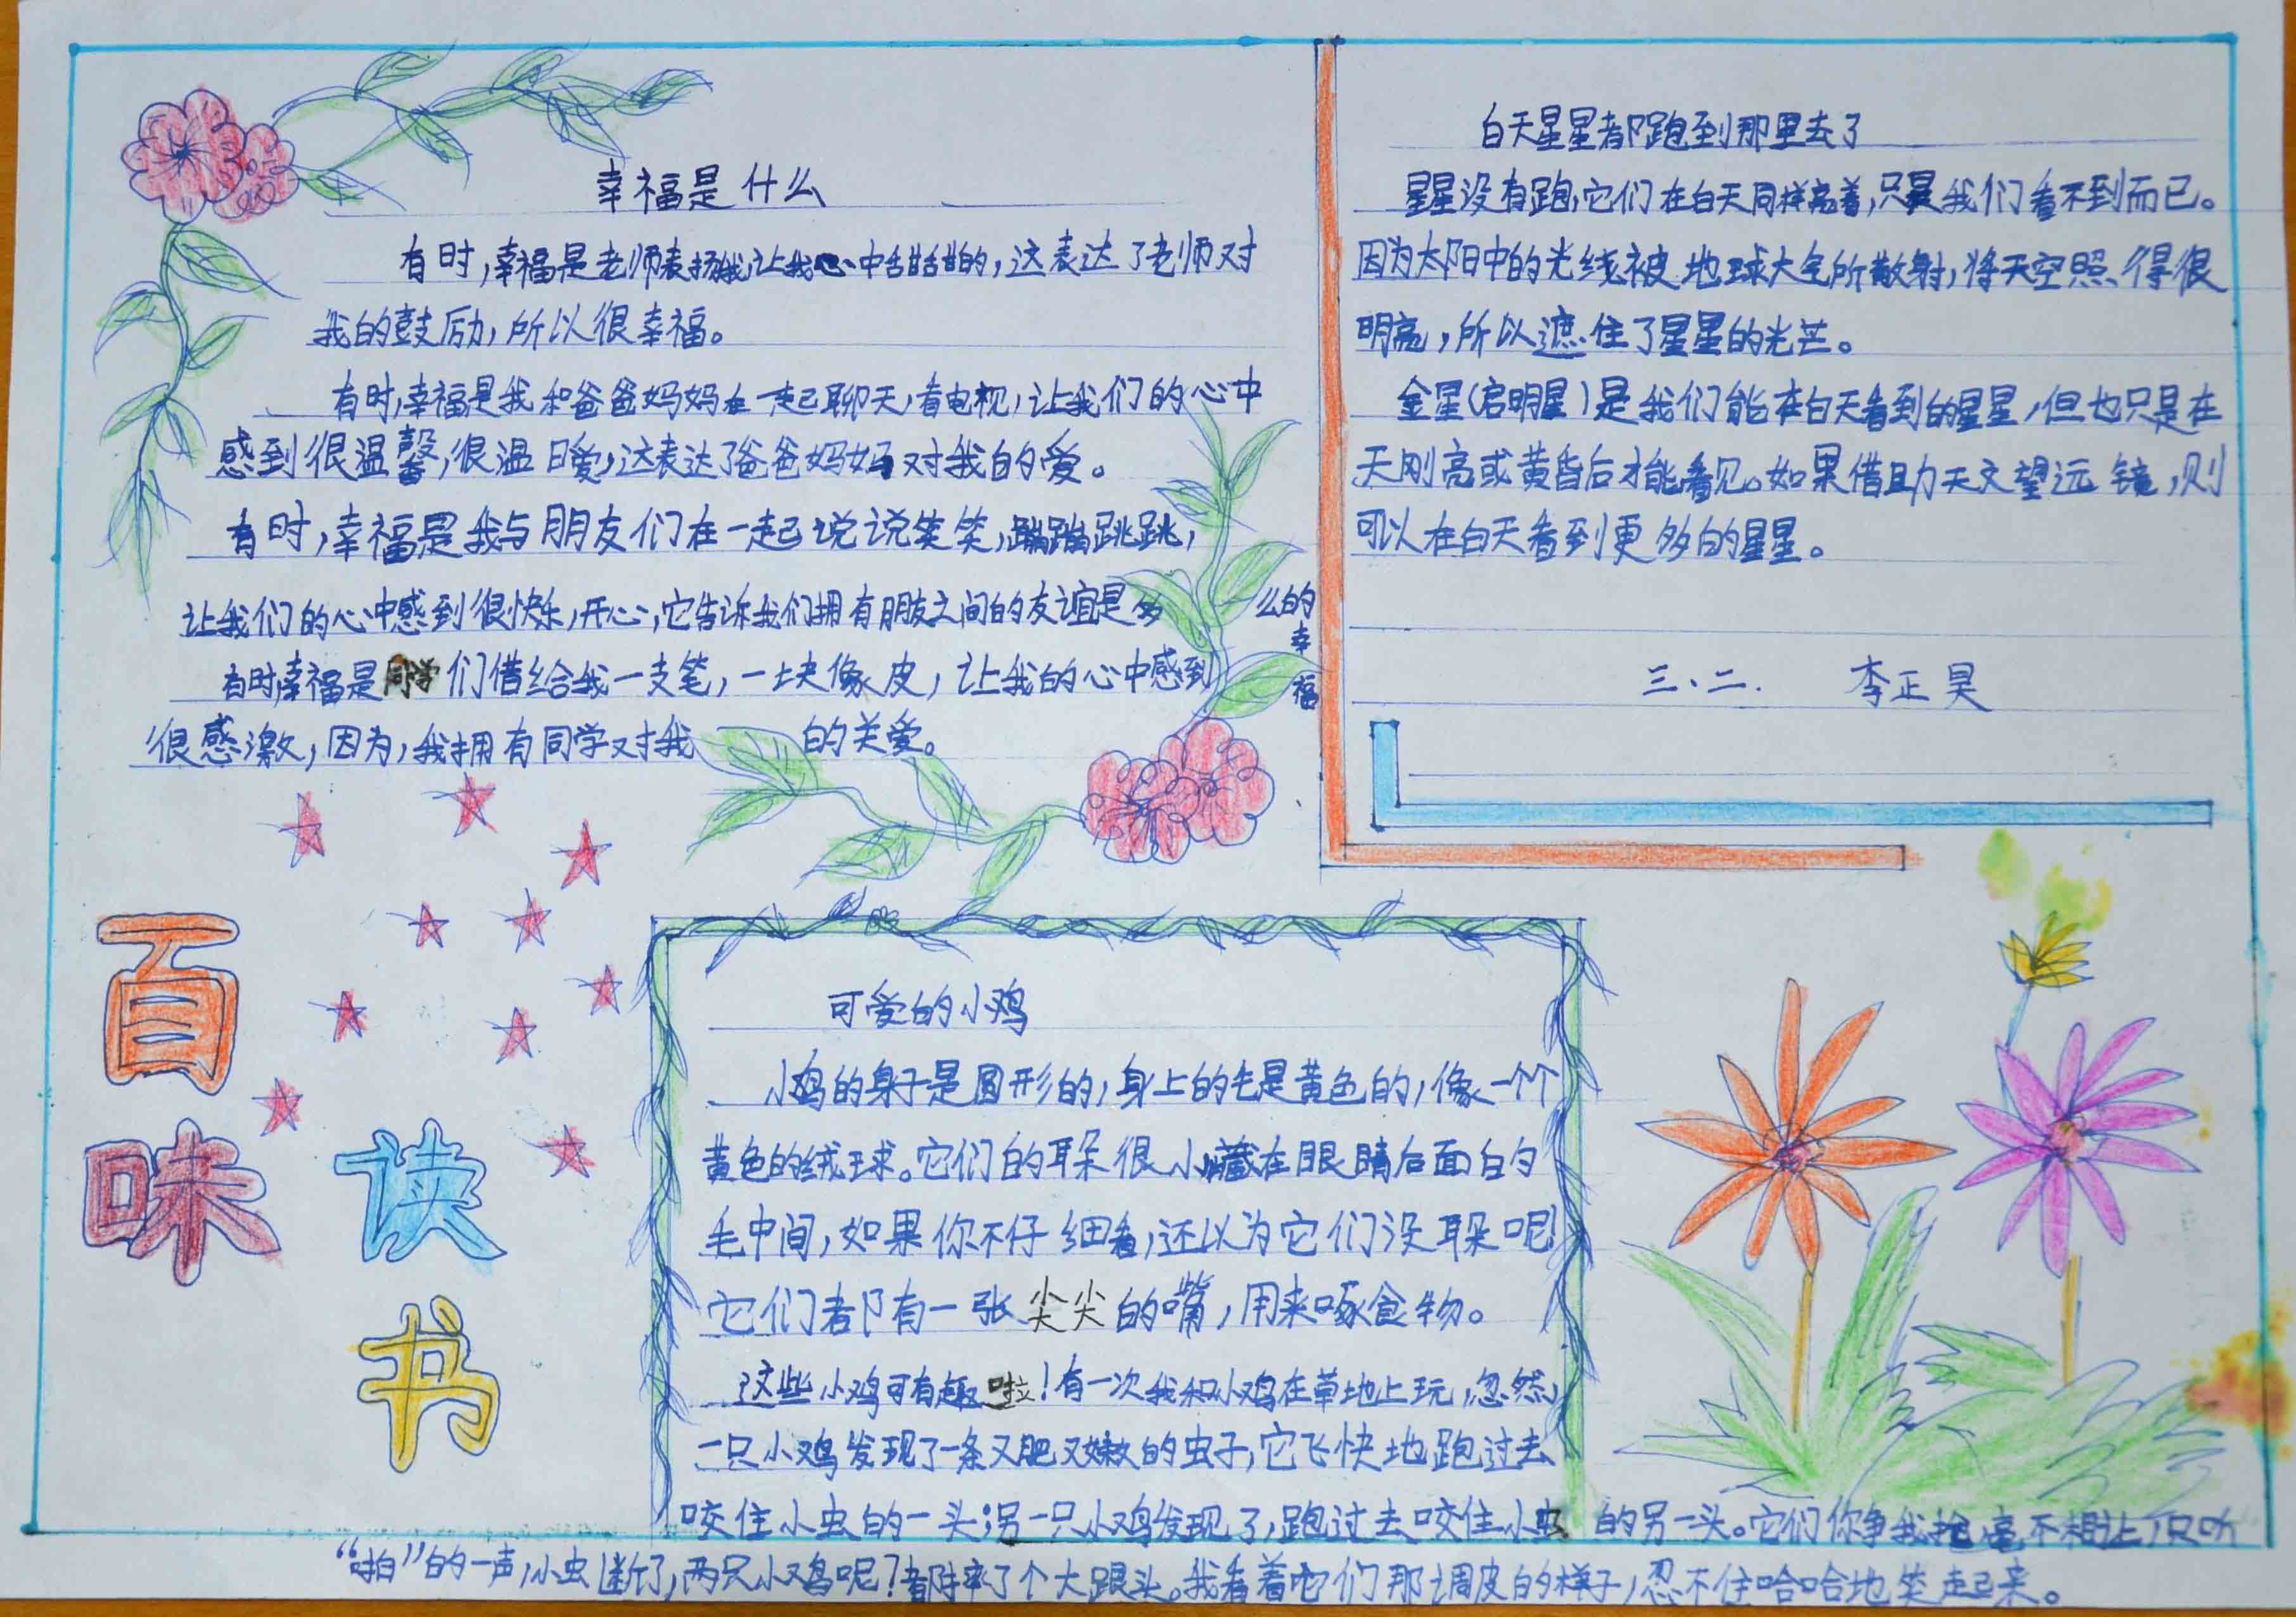 幸福是什么
有时,幸福是老师表扬我让我心中甜甜的,这表达了老师对
我的鼓励,所以很幸福。
有时,幸福是我和爸爸妈妈在一起聊天,看电视,让我们的心中
感到很温馨,很温暖,这表达了爸爸妈妈对我的爱。
有时,幸福是我与朋友们在一起说说笑笑,蹦蹦跳跳,
让我们的心中感到很快乐,开心,它告诉我们拥有朋友之间的友谊是多
么的幸福
有时,幸福是同学们借给我一支笔,一块像皮,让我的心中感到
很感激,因为,我拥有同学对我的关爱。
白天星星都跑到那里去了
星星没有跑,它们在白天同样亮着,只是我们看不到而已。
因为太阳中的光线被地球大气所散射,将天空照得很
明亮,所以遮住了星星的光芒。
金星(启明星)是我们能在白天看到的星星,但也只是在
天刚亮或黄昏后才能看见。如果借助天文望远镜,则
可以在白天看到更多的星星。
三、二. 李正昊
百味
读书
可爱的小鸡
小鸡的身子是圆形的,身上的毛是黄色的,像一个个
黄色的绒球。它们的耳朵很小,藏在眼睛后面的
毛中间,如果你不仔细看,还以为它们没耳朵呢!
它们都有一张尖尖的嘴,用来啄食物。
这些小鸡可有趣啦!有一次我和小鸡在草地上玩,忽然,
一只小鸡发现了一条又肥又嫩的虫子,它飞快地跑过去
咬住小虫的一头;另一只小鸡发现了,跑过去咬住小虫的另一头。它们你争我抢,毫不相让,只听
“啪”的一声,小虫断了,两只小鸡呢?都摔了个大跟头。我看着它们那调皮的样子,忍不住哈哈地笑起来。